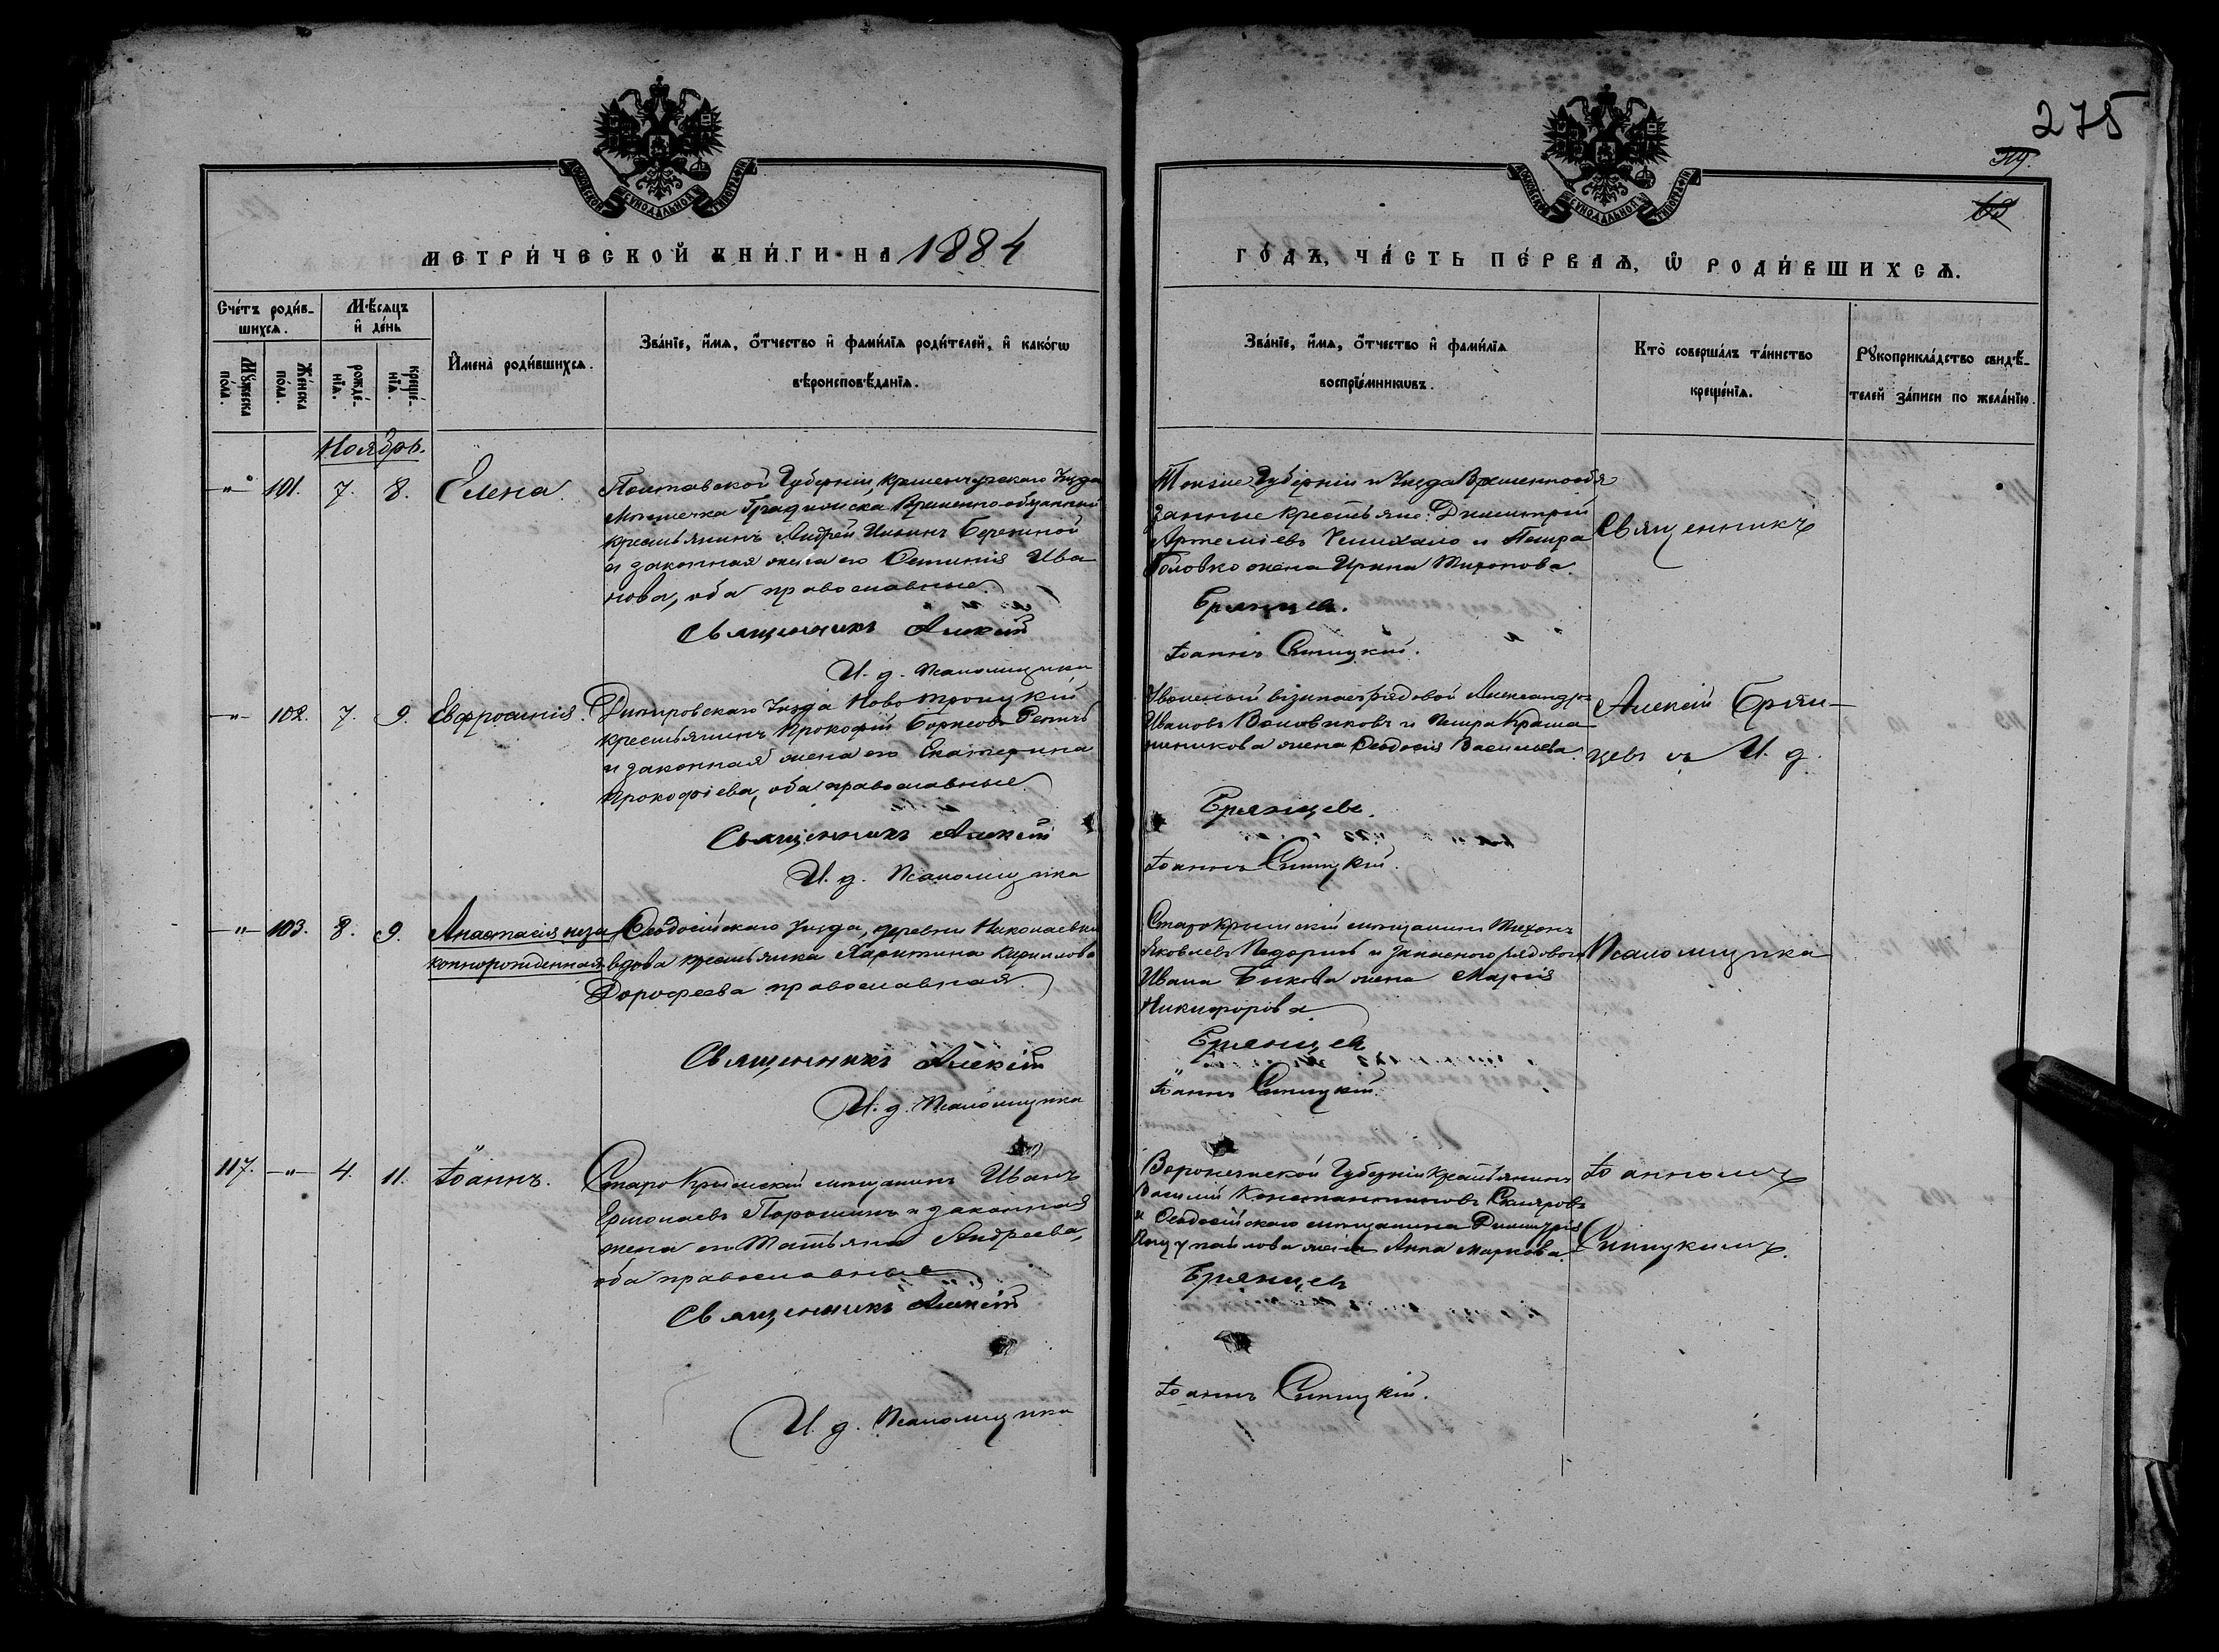 275
МОСКОВСКОЙ СѴНОДАЛЬНОЙ ТИПОГРАФІИ
МОСКОВСКОЙ СѴНОДАЛЬНОЙ ТИПОГРАФІИ
МЕТРИ́ЧЕСКОЙ КНИ́ГИ НА 1884
ГО́ДЪ, ЧА́СТЬ ПЕ́РВАѦ, Ѽ РОДИ́ВШИХСѦ.
Сче́тъ роди́в-
шихсѧ.
Мꙋ́жеска по́ла.
Же́нска по́ла.
Мѣ́сѧцъ и҆ де́нь
рожде́-нїѧ.
креще́-нїѧ.
И҆мена̀ роди́вшихсѧ.
Зва́нїе, и҆́мѧ, ѻ҆́тчество и҆ фами́лїѧ роди́телей, и҆ како́гѡ
вѣроисповѣ́данїѧ.
Зва́нїе, и҆́мѧ, ѻ҆́тчество и҆ фами́лїѧ
воспрїе́мникѡвъ.
Кто̀ соверша́лъ та́инство
креще́нїѧ.
Рꙋкоприкла́дство свидѣ́-
телей за́писи по жела́нїю.
Ноябрь.
— " — 101. 7. 8. Елена.
Полтавской Губерніи, Кременчугскаго Уѣзда
Мѣстечка Градижска Временно-обязанный
крестьянинъ Андрей Бережной
и законная жена его Ива
нова, оба православные.
Священникъ Алексій
И. д. Псаломщика
Губерніи и Уѣзда Временнообя
занные крестьяне: Димитрій
Артеміевъ и Петра
Головко жена Ирина Тихонова.
Брянцевъ.
Іоаннъ Синицкій.
Священникъ
— " — 102. 7. 9. Евфросинія.
Днѣпровскаго Уѣзда Ново Троицкій
крестьянинъ Прокофій Борисовъ
и законная жена его Екатерина
Прокофіева, оба православные.
Священникъ Алексій
И. д. Псаломщика
Уволеный въ запасъ рядовой Александръ
Ивановъ и Петра Краше
нинникова жена Ѳеодосія Васильева.
Брянцевъ.
Іоаннъ Синицкій.
Алексій Брян-
цевъ съ И. д.
— " — 103. 8. 9. Анастасія неза
коннорожденная
Ѳеодосійскаго Уѣзда, деревни Николаевки
вдова крестьянка Харитина Кириллова
Дорофеева православная.
Священникъ Алексій
И. д. Псаломщика
Старокрымскій мѣщанинъ Тихонъ
Яковлевъ и запаснаго рядового
Ивана Быкова жена Марія
Никифорова.
Брянцевъ
Іоаннъ Синицкій.
Псаломщика
117. — " — 4. 11. Іоаннъ.
Старо Крымскій мѣщанинъ Иванъ
Ермолаевъ Порошинъ и законная
жена его Татьяна Андреева,
оба православные
Священникъ Алексій
И. д. Псаломщика
Воронежской Губерніи крестьянинъ
Василій Константиновъ Скляровъ
и Ѳеодосійскаго мѣщанина Димитрія
жена Анна Маркова.
Брянцевъ
Іоаннъ Синицкій.
Іоанномъ
Синицкимъ.